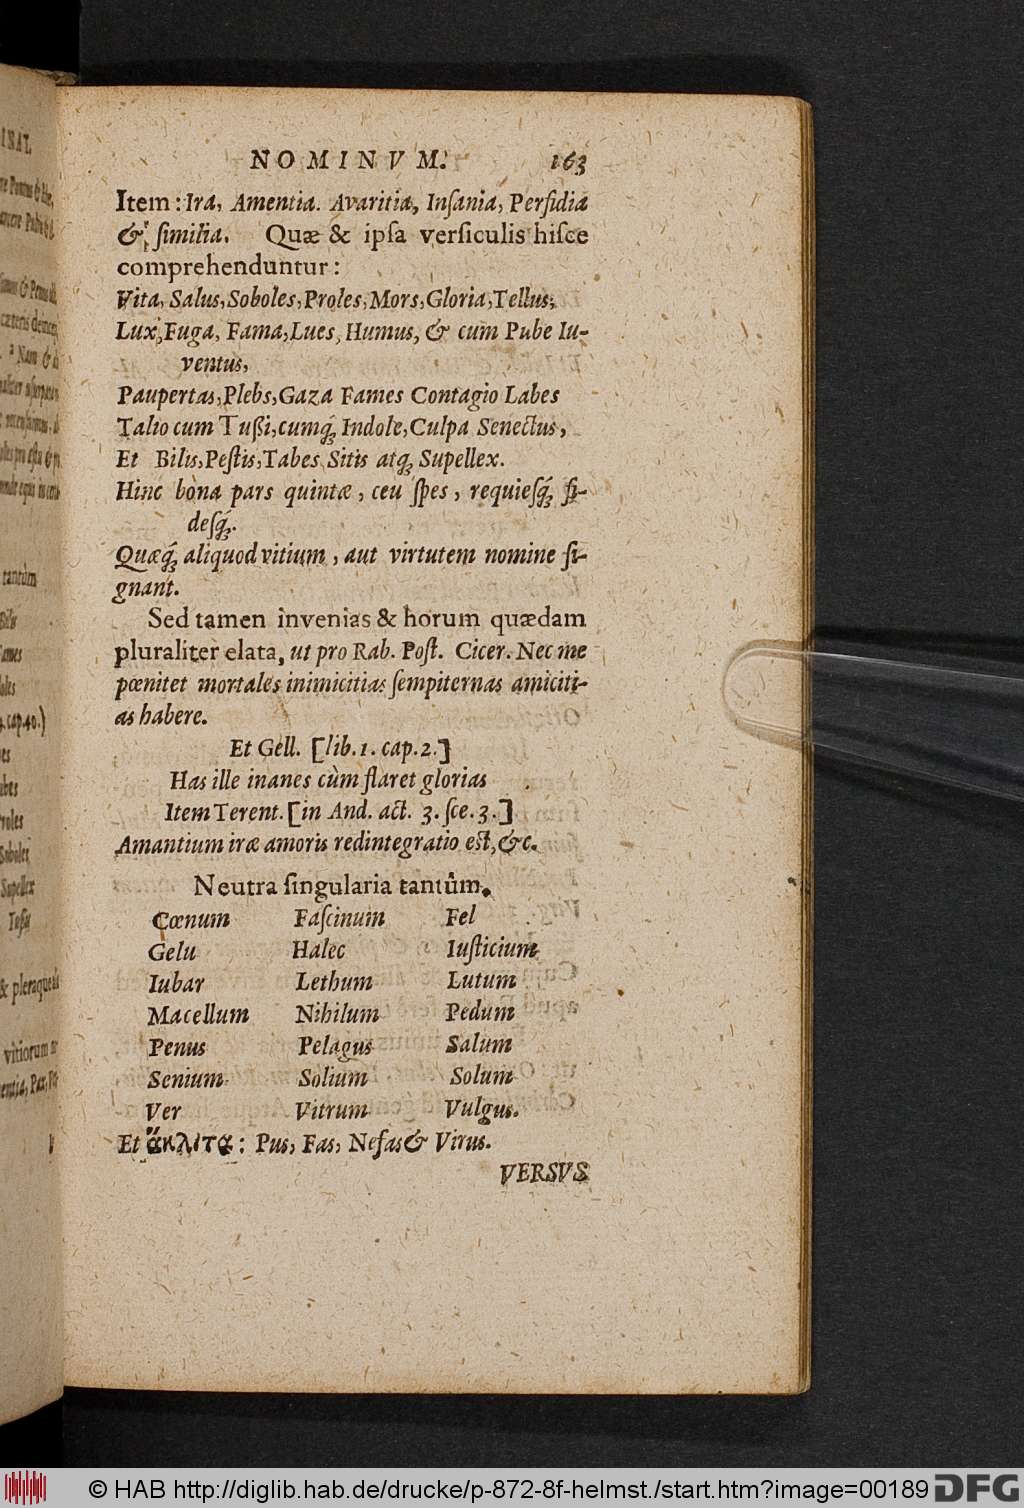 NOMINVM. 163
Item: Ira, Amentia. Avaritia, Inſania, Perfidia
& ſimilia. Quæ & ipſa verſiculis hiſce
comprehenduntur:
Vita, Salus, Soboles, Proles, Mors, Gloria, Tellus,
Lux, Fuga, Fama, Lues, Humus, & cum Pube Iu-
ventus,
Paupertas, Plebs, Gaza Fames Contagio Labes
Talio cum Tußi, cumq́ꝫ Indole, Culpa Senectus,
Et Bilis, Peſtis, Tabes Sitis atqꝫ Supellex.
Hinc bona pars quintæ, ceu ſpes, requieſq́ꝫ fi-
deſq́ꝫ.
Quæq́ꝫ aliquod vitium, aut virtutem nomine ſi-
gnant.
Sed tamen invenias & horum quædam
pluraliter elata, ut pro Rab. Poſt. Cicer. Nec me
pœnitet mortales inimicitias ſempiternas amiciti-
as habere.
Et Gell. [lib. 1. cap. 2.]
Has ille inanes cùm flaret glorias
Item Terent. [in And. act. 3. ſce. 3.]
Amantium iræ amoris redintegratio eſt, &c.
Neutra ſingularia tantûm.
Cœnum Faſcinum Fel
Gelu Halec Iuſticium
Iubar Lethum Lutum
Macellum Nihilum Pedum
Penus Pelagus Salum
Senium Solium Solum
Ver Vitrum Vulgus.
Et ἄκλιτα: Pus, Fas, Nefas & Virus.
VERSVS
© HAB http://diglib.hab.de/drucke/p-872-8f-helmst./start.htm?image=00189 DFG